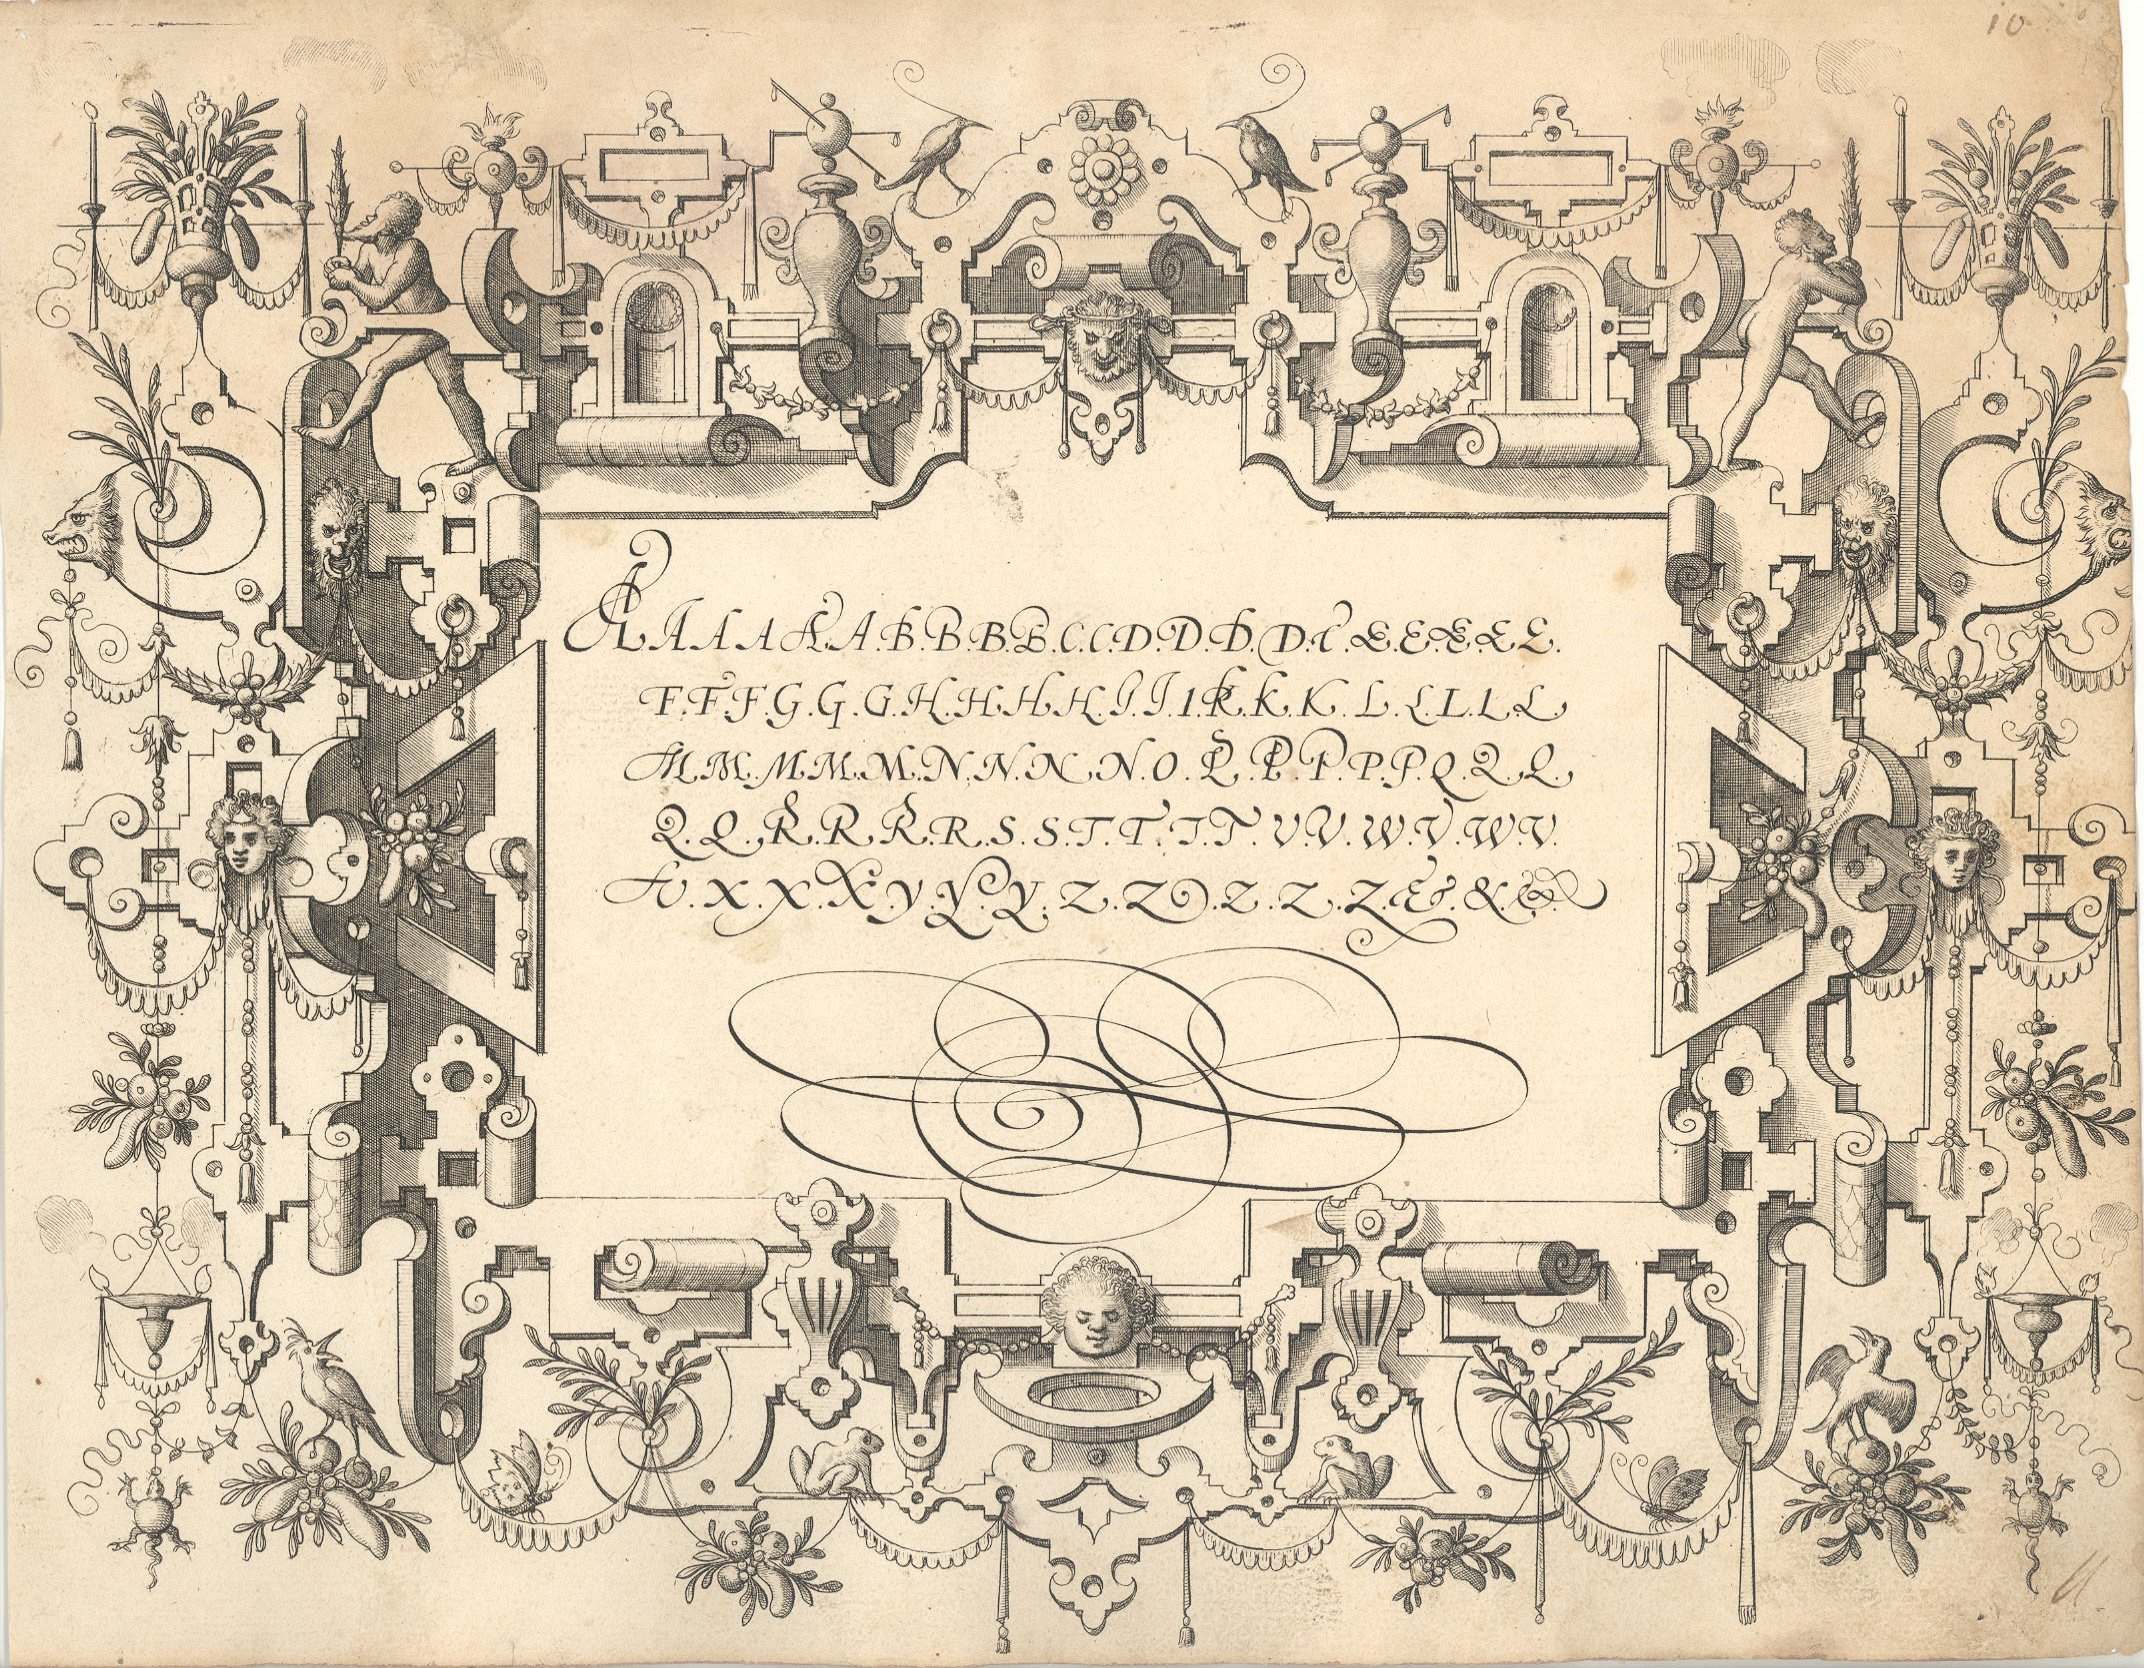 10
A.A.A.A.A.A.B.B.B.B.C.C.D.D.D.D.C.E.E.E.E.E.
F.F.F.G.G.G.H.H.H.H.I.I.I.K.K.K.L.L.L.L.L
M.M.M.M.M.N.N.N.N.O.P.P.P.P.P.Q.Q.Q.
Q.Q.R.R.R.R.S.S.T.T.T.T.V.V.W.V.W.V.
A.X.X.X.Y.Y.Y.Z.Z.Z.Z.Z.&.&.&.